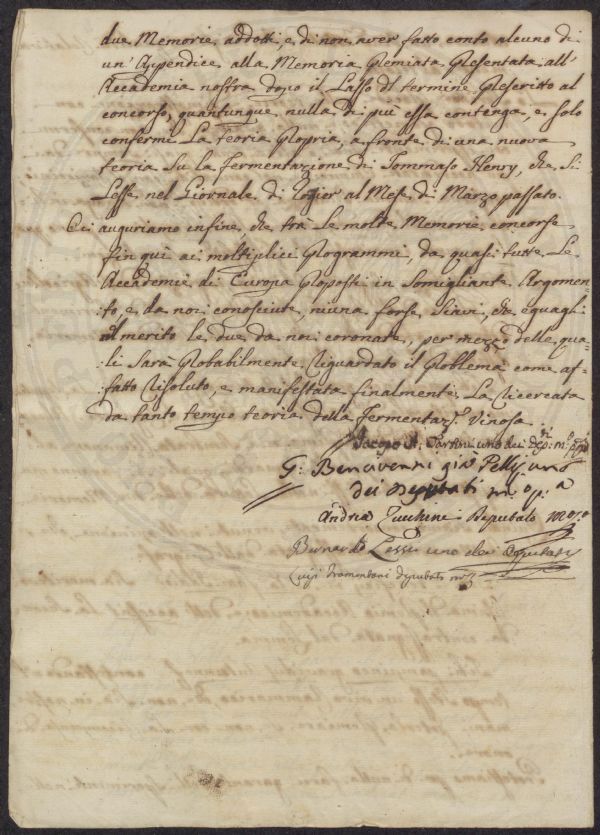 due Memorie addotti, e di non aver fatto conto alcuno di
un' Appendice alla Memoria Premiata Presentata all'
Accademia nostra dopo il Lasso di termine Prescritto al
concorso, quantunque nulla di più essa contenga, e solo
confermi La teoria Propria, a fronte di una nuova
teoria su la Fermentazione di Tommaso Henry, che si
Lesse nel Giornale di Rozier al Mese di Marzo passato.
Ci auguriamo infine che trà Le molte Memorie concorse
fin quì ai moltiplici Programmi, da quasi tutte Le
Accademie di Europa Proposti in somigliante Argomen-
to, e da noi conosciute, niuna forse siavi, che eguagli
il merito le due da noi coronate, per mezzo delle qua-
li sarà Probabilmente Riguardato il Problema come af-
fatto Risoluto, e manifestata finalmente La Ricercata
da tanto tempo teoria della Fermentaz.e Vinosa.
Jacopo Tartini uno dei Dep.ti m.o pp.a
G: Bencivenni già Pelli uno
dei Deputati m: o p: a
Andrea Zucchini Deputato m.o p.o
Bernardo Lessi uno dei Deputati
Luigi Tramontani Deputato